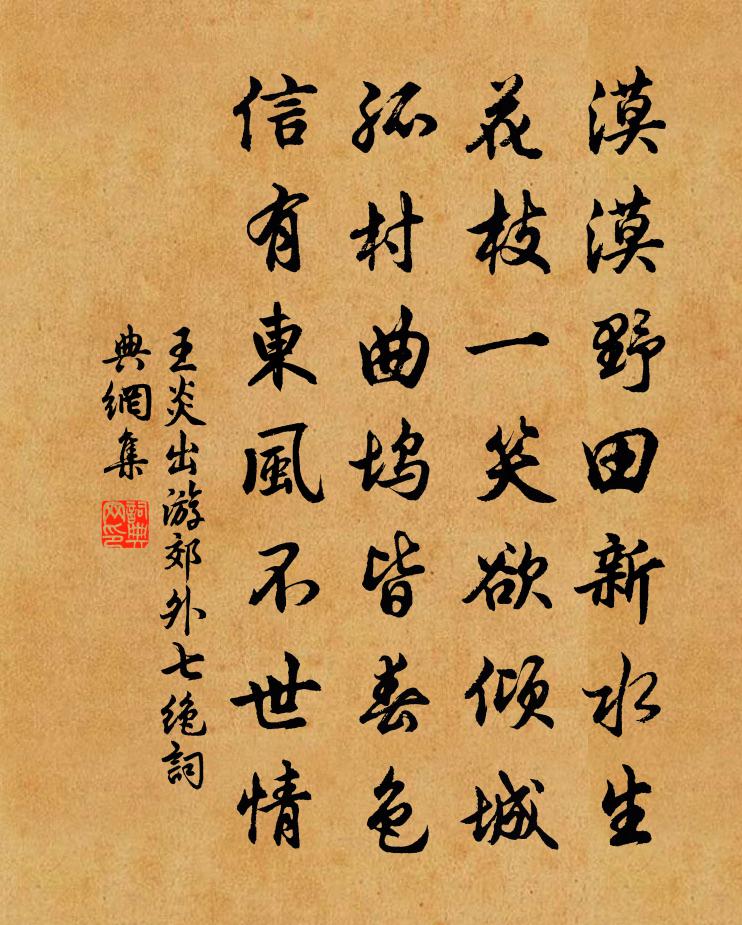 漠漠野田新水生
花枝一笑欲傾城
孤村曲塢皆春色
信有東風不世情
王炎出游郊外七絶詞
典網集
詞典網印